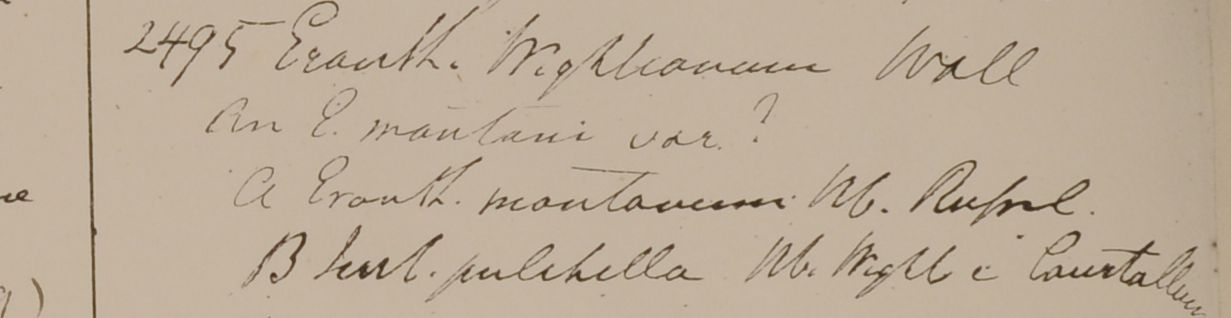 2495 Eranth. Wightianum Wall
An E. montani var.?
A Eranth. montanum Hb. Russel.
B Just. pulchella Hb. Wight e Courtallum